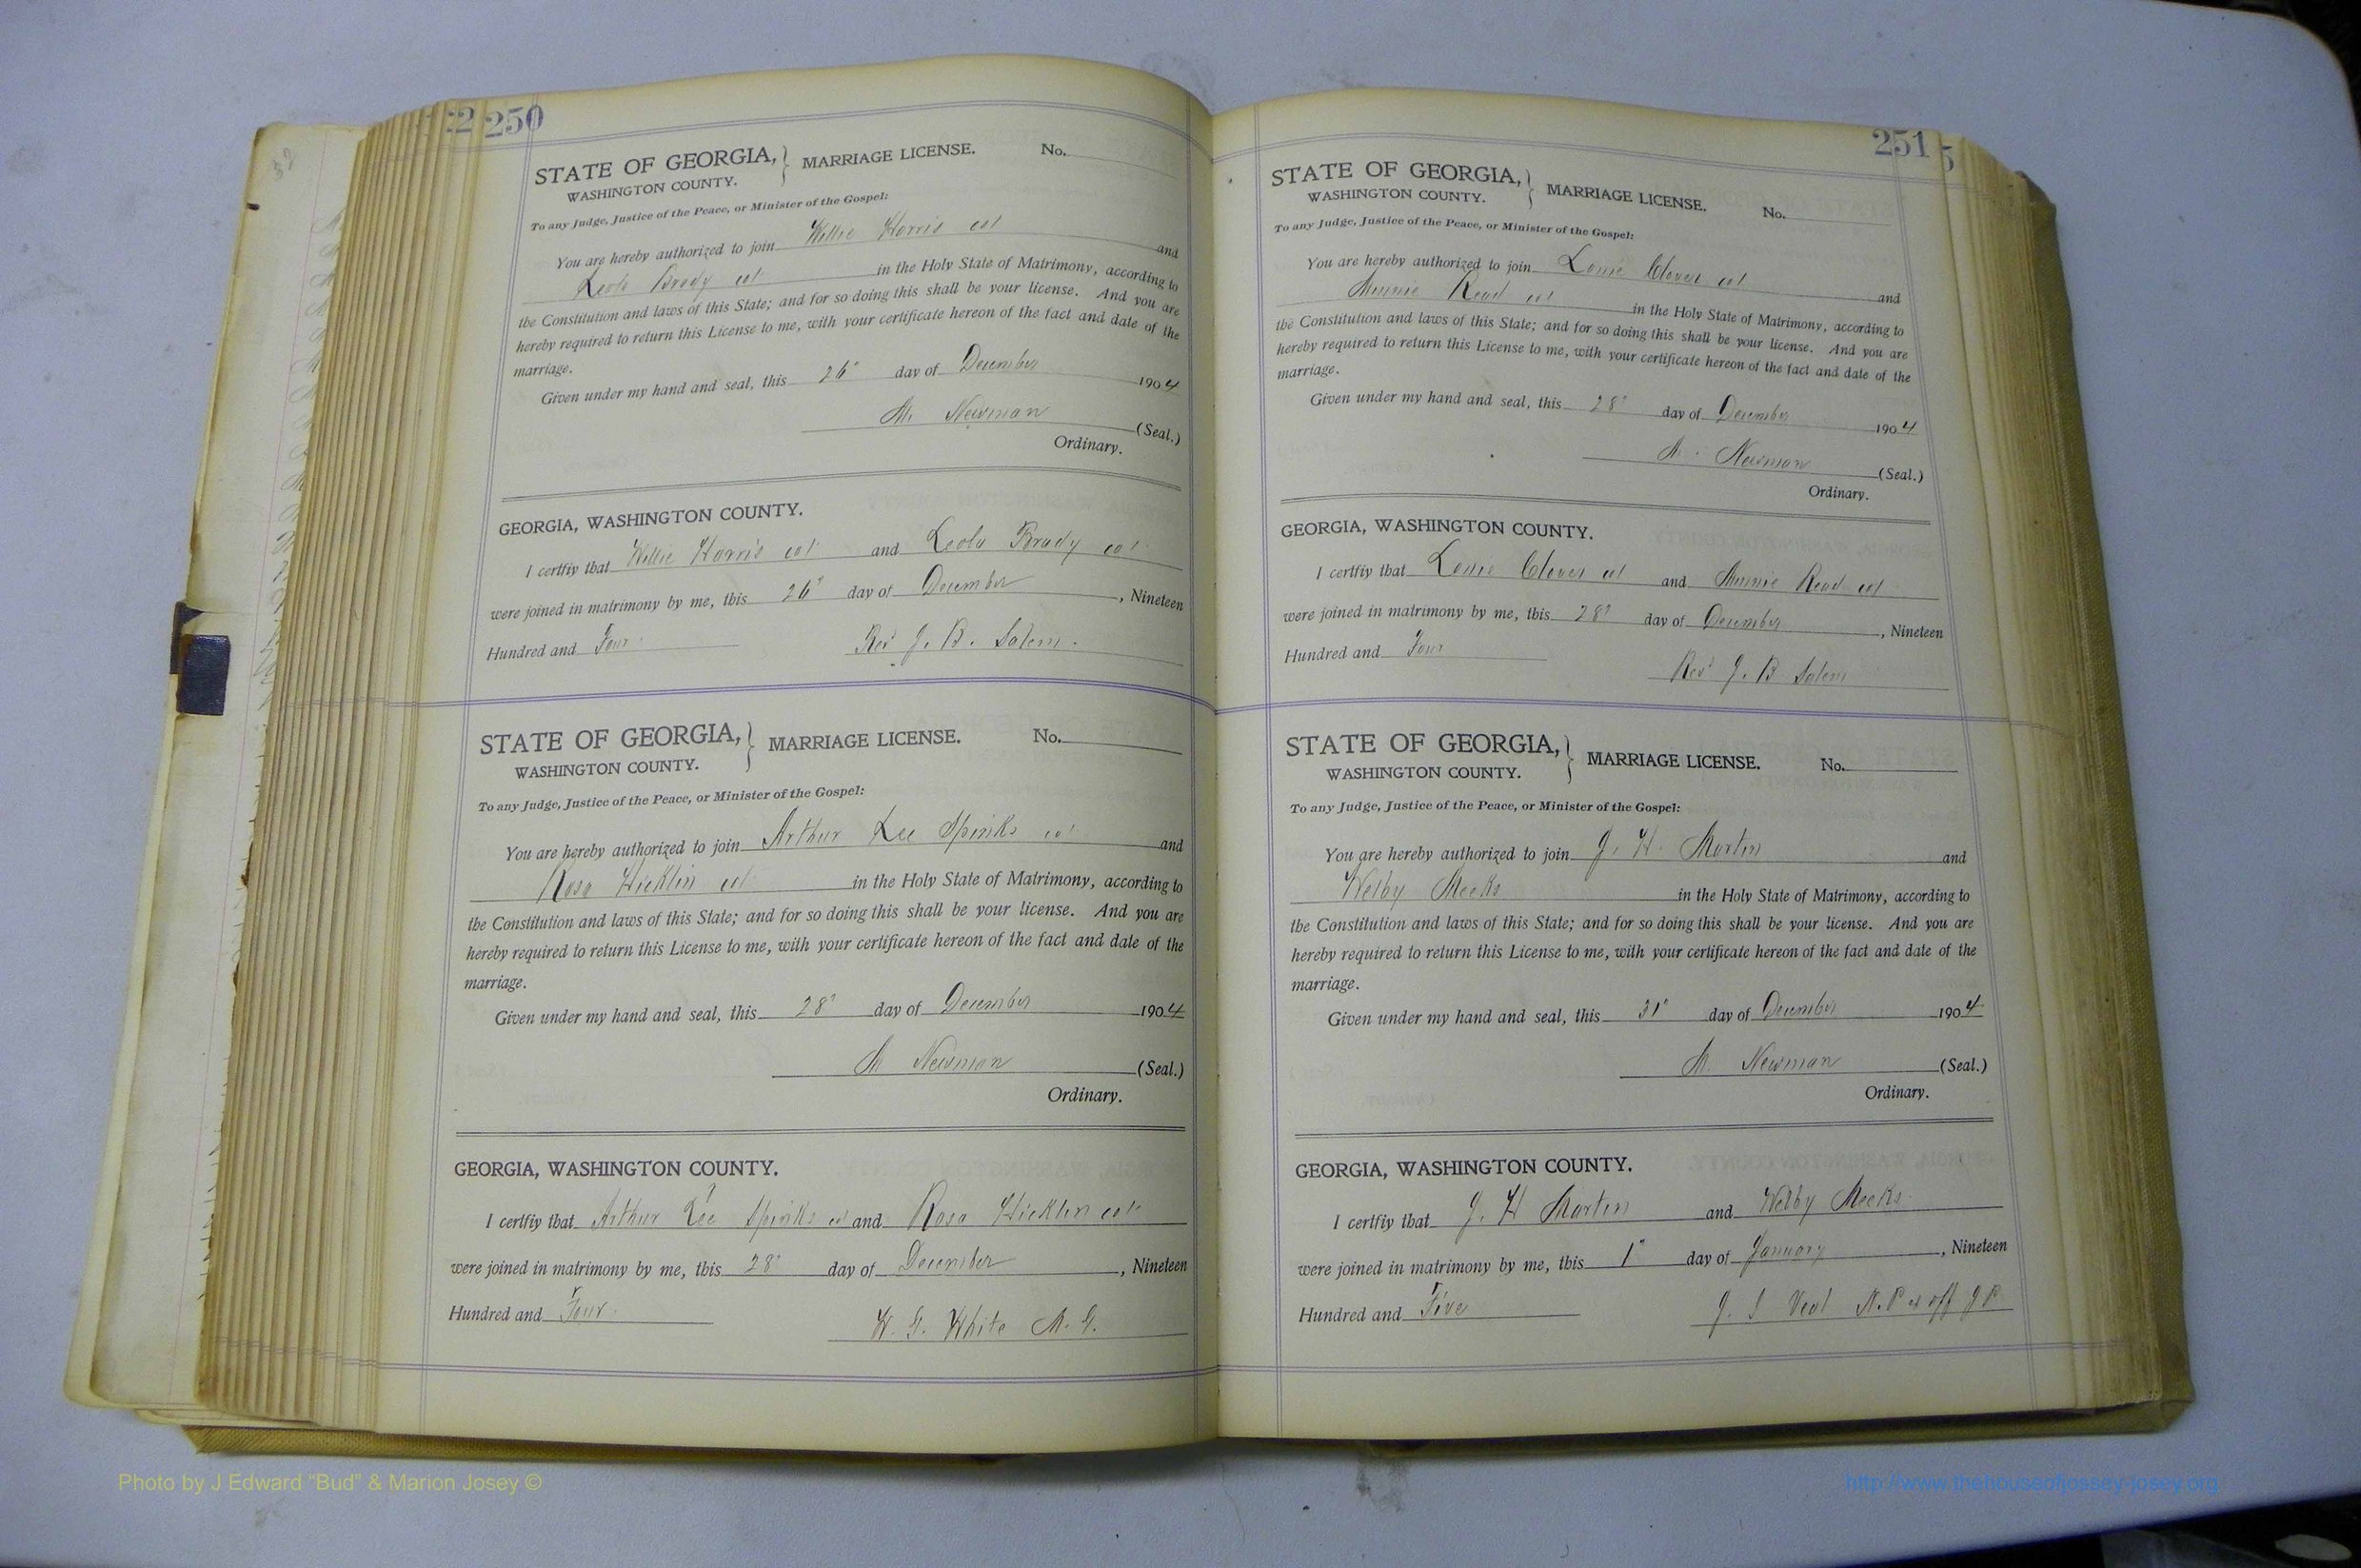 250
STATE OF GEORGIA, } MARRIAGE LICENSE. No.
WASHINGTON COUNTY.
To any Judge, Justice of the Peace, or Minister of the Gospel:
You are hereby authorized to join Willie Harris col and
Leola Brady col in the Holy State of Matrimony, according to
the Constitution and laws of this State; and for so doing this shall be your license. And you are
hereby required to return this License to me, with your certificate hereon of the fact and date of the
marriage.
Given under my hand and seal, this 26" day of December 1904
M. Newman (Seal.)
Ordinary.
GEORGIA, WASHINGTON COUNTY.
I certfiy that Willie Harris col and Leola Brady col
were joined in matrimony by me, this 26" day of December, Nineteen
Hundred and Four Rev J. B. Salem.
STATE OF GEORGIA, } MARRIAGE LICENSE. No.
WASHINGTON COUNTY.
To any Judge, Justice of the Peace, or Minister of the Gospel:
You are hereby authorized to join Arthur Lee Spinks col and
Rosa Hicklin col in the Holy State of Matrimony, according to
the Constitution and laws of this State; and for so doing this shall be your license. And you are
hereby required to return this License to me, with your certificate hereon of the fact and date of the
marriage.
Given under my hand and seal, this 28" day of December 1904
M Newman (Seal.)
Ordinary.
GEORGIA, WASHINGTON COUNTY.
I certfiy that Arthur Lee Spinks col and Rosa Hicklin col
were joined in matrimony by me, this 28" day of December, Nineteen
Hundred and Four
W. G. White M. G.
251
STATE OF GEORGIA, } MARRIAGE LICENSE. No.
WASHINGTON COUNTY.
To any Judge, Justice of the Peace, or Minister of the Gospel:
You are hereby authorized to join Lonie Glover col and
Minnie Read col in the Holy State of Matrimony, according to
the Constitution and laws of this State; and for so doing this shall be your license. And you are
hereby required to return this License to me, with your certificate hereon of the fact and date of the
marriage.
Given under my hand and seal, this 28" day of December 1904
M. Newman (Seal.)
Ordinary.
GEORGIA, WASHINGTON COUNTY.
I certfiy that Lonie Glover col and Minnie Read col
were joined in matrimony by me, this 28" day of December, Nineteen
Hundred and Four
Rev J. B Salem
STATE OF GEORGIA, } MARRIAGE LICENSE. No.
WASHINGTON COUNTY.
To any Judge, Justice of the Peace, or Minister of the Gospel:
You are hereby authorized to join J. H. Martin and
Welby Meeks in the Holy State of Matrimony, according to
the Constitution and laws of this State; and for so doing this shall be your license. And you are
hereby required to return this License to me, with your certificate hereon of the fact and date of the
marriage.
Given under my hand and seal, this 31" day of December 1904
M. Newman (Seal.)
Ordinary.
GEORGIA, WASHINGTON COUNTY.
I certfiy that J. H Martin and Welby Meeks
were joined in matrimony by me, this 1" day of January, Nineteen
Hundred and Five J. S Veal N. P ex off J P
Photo by J Edward “Bud” & Marion Josey ©
http://www.thehouseofjossey-josey.org